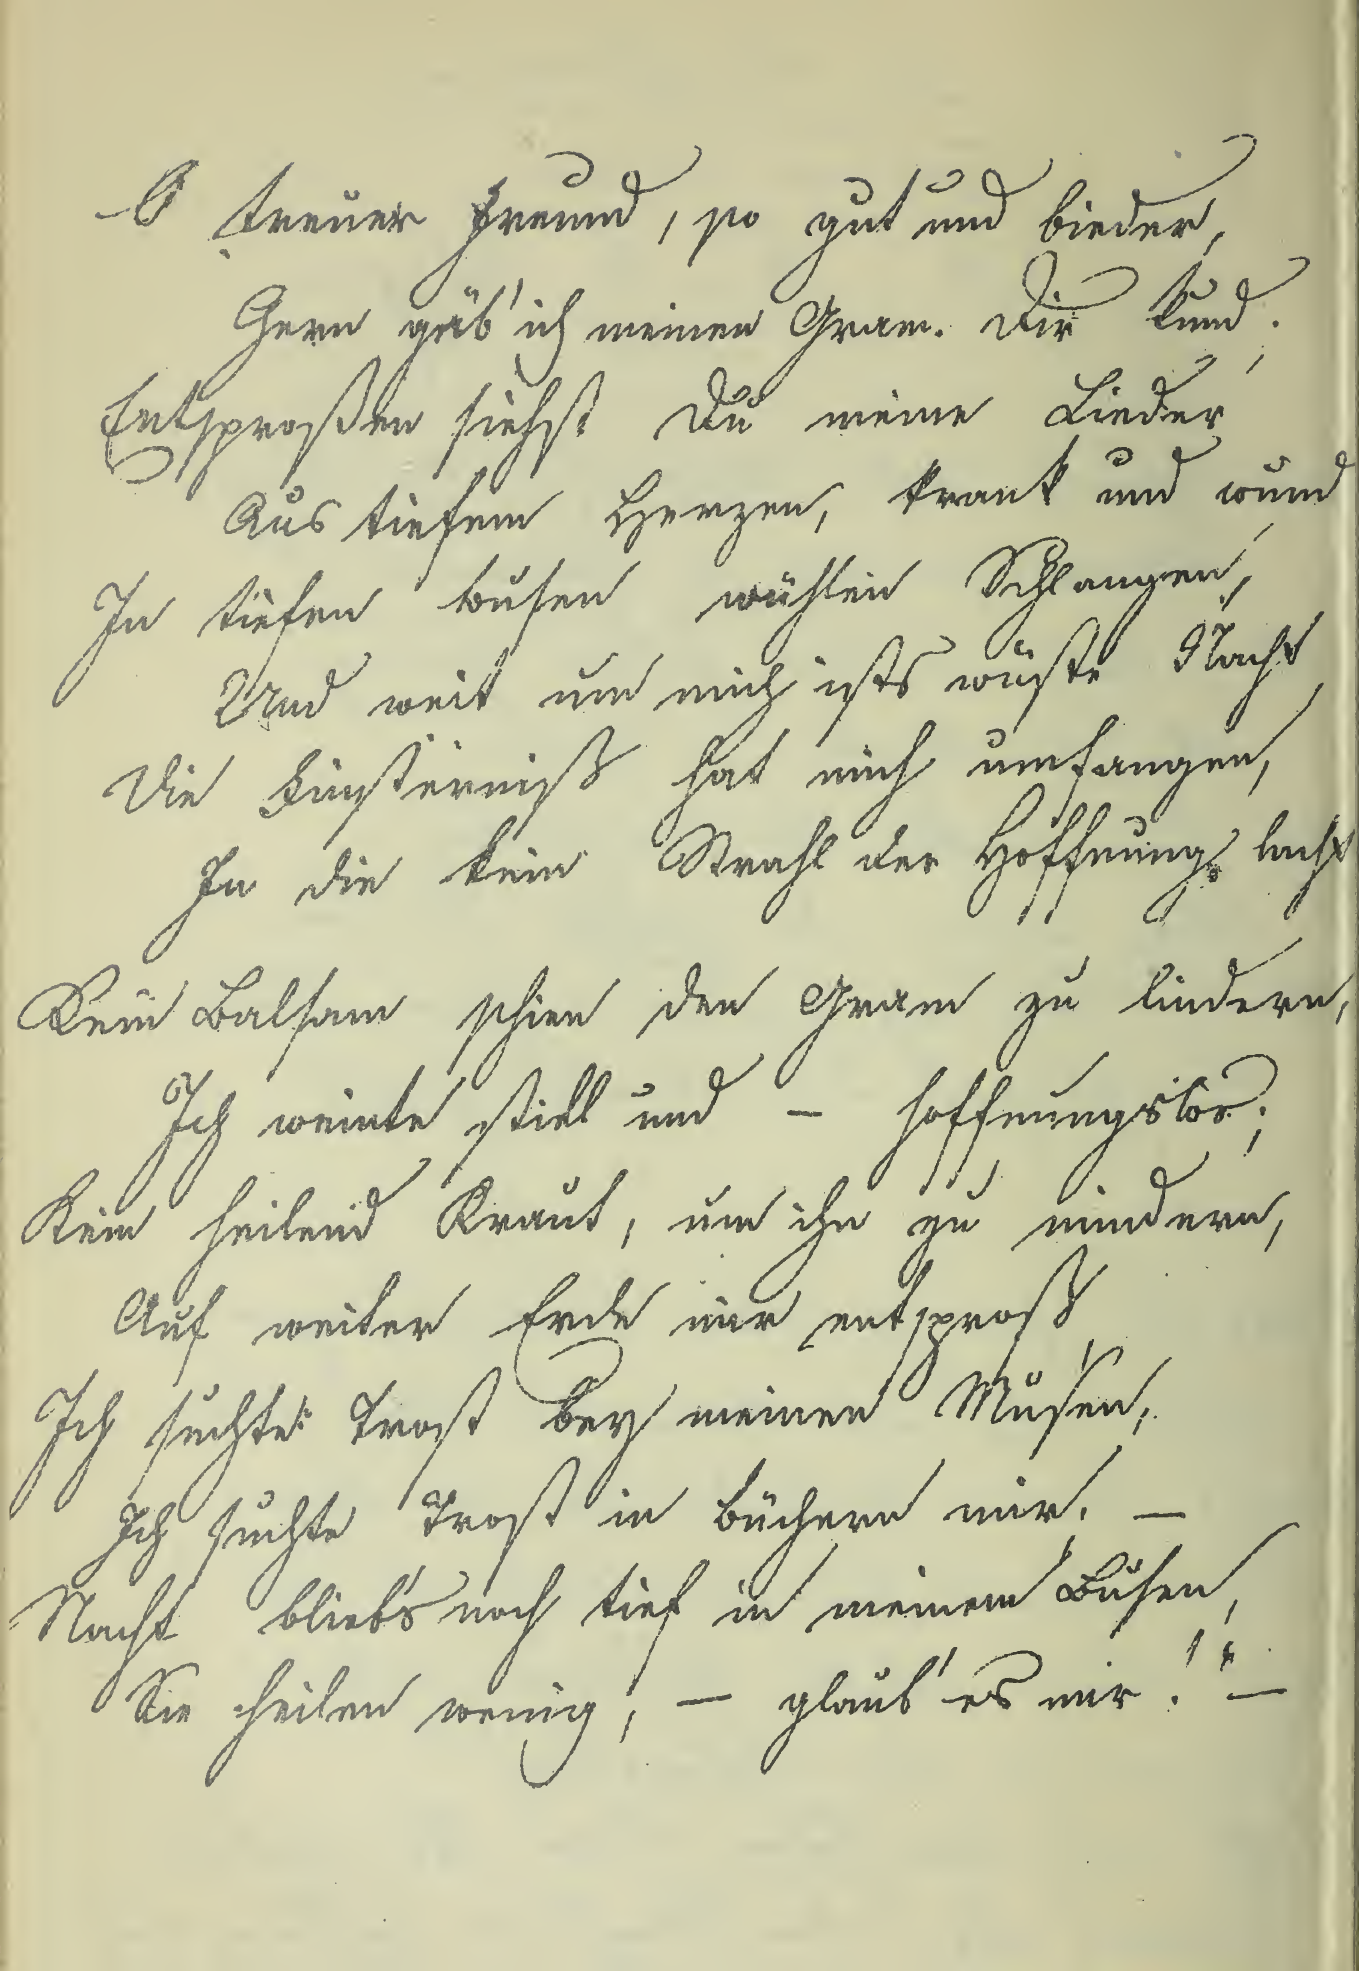 O treuer Freund, so gut und bieder,
Gern gäb' ich meinen Gram Dir kund.
Entsproßen siehst Du meine Lieder
Aus tiefem Herzen, krank und wund
In tiefen Busen wühlen Schlangen,
Und weit um mich ists wüste Nacht,
Die Finsterniß hat mich umfangen,
In die kein Strahl der Hoffnung lacht
Kein Balsam schien den Gram zu lindern,
Ich weinte still und – hoffnungslos;
Kein heilend Kraut, um ihn zu mindern,
Auf weiter Erde mir entsproß
Ich suchte Trost bey meinen Musen,
Ich suchte Trost in Büchern mir. –
Nacht blieb's noch tief in meinem Busen,
Sie heilen wenig, – glaub' es mir! –